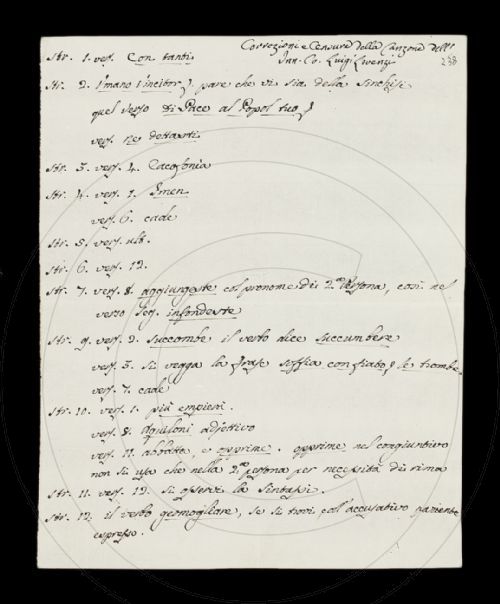 Correzioni e Censure della Canzone dell'
Sr. Co. Luigi Lorenzi
238
Str. 1. vers. Con tanti
Str. 2. pare che vi sia della Sinchisi
quel verso di Pace al Popol tuo
vers. ne dettasti
Str. 3. vers. 4. Cacofonia
Str. 4. vers. 1. Imen
vers. 6. cade
Str. 5. vers. ult.
Str. 6. vers. 12.
Str. 7. vers. 8. aggiungeste col pronome di 2.da Persona, così nel
verso seg. infondeste
Str. 9. vers. 2. succombe il verbo dice succumbere
vers. 3. si vegga la frase soffia con fiato le trombe
vers. 7. cade
Str. 10. vers. 1. più empieni.
vers. 8. Aquiloni adjettivo
vers. 11. abbatta, e opprime. opprime nel congiuntivo
non si usa che nella 2.da persona per necessità di rima
Str. 11. vers. 12. si osservi la Sintassi.
Str. 12. il verbo germogliare, se si trovi coll'accusativo paziente
espresso.